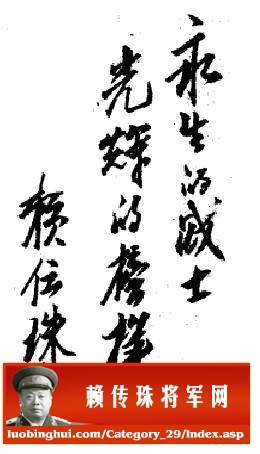 永生的战士
光辉的榜样
赖传珠
赖传珠将军网
luobinghui.com/Category_29/Index.asp